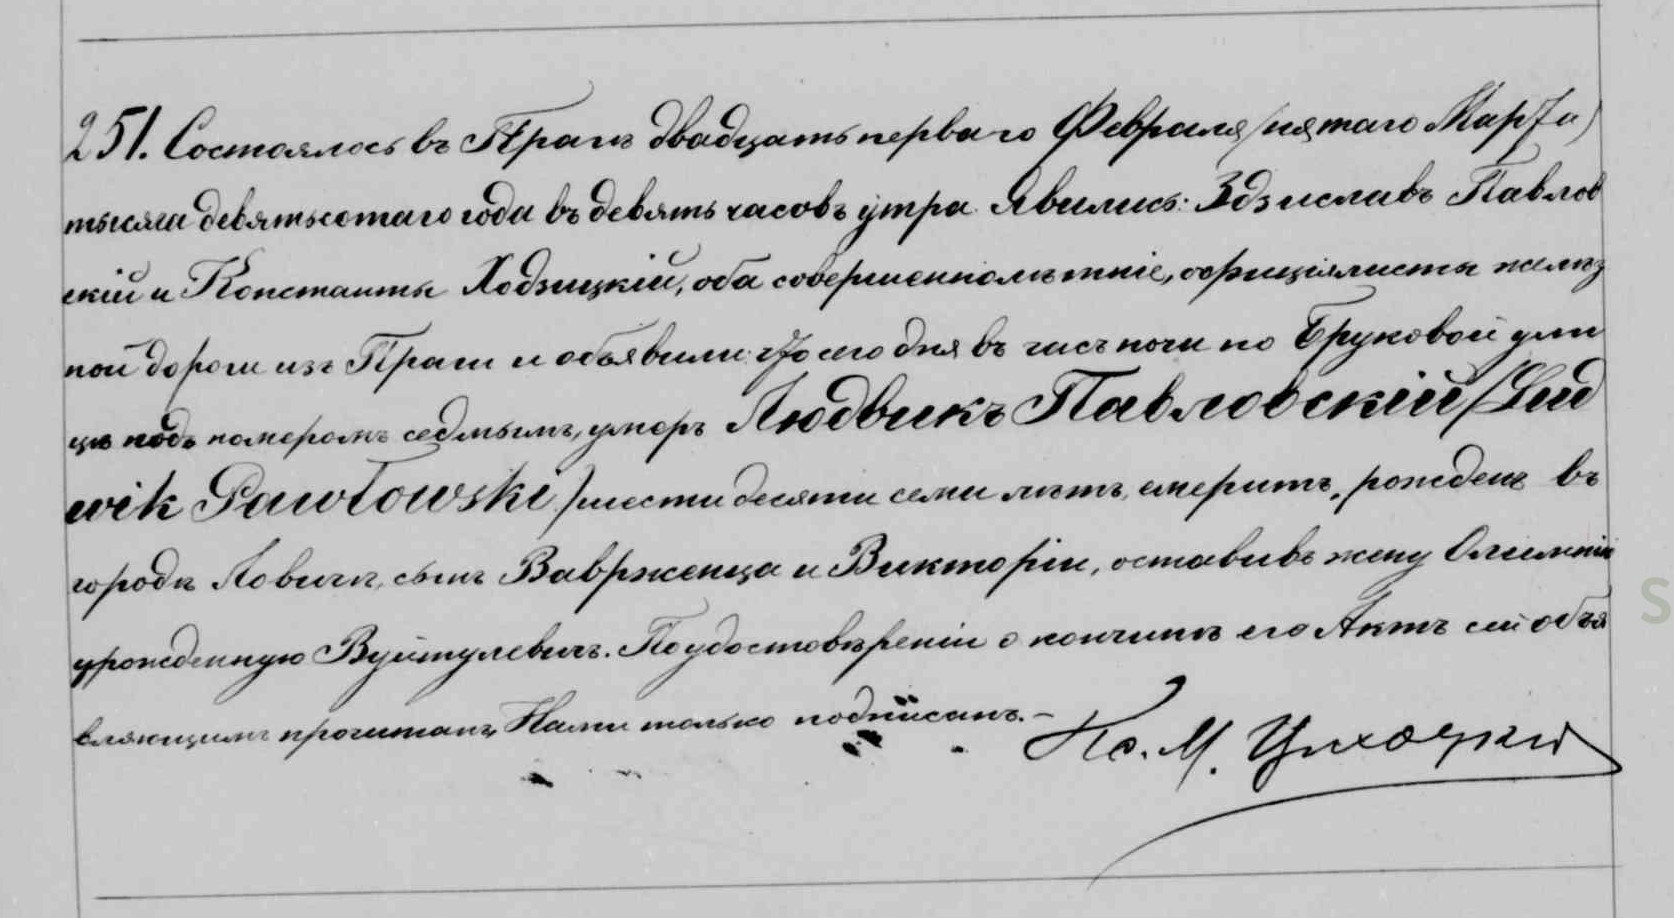 251. Состоялось въ Прагѣ двадцать перваго Февраля /пятаго Марта/
тысяча девятьсотаго года въ девять часовъ утра. Явились: Здзиславъ Павлов
скій и Константы Ходзицкій, оба совершеннолѣтніе, оффиціялисты желѣз
ной дороги изъ Праги и объявили что сего дня въ часъ ночи по Бруковой ули
цѣ подъ номеромъ седмымъ, умеръ Людвикъ Павловскій /Lud
wik Pawłowski/ шестидесяти семи лѣтъ, емеритъ, рожденъ въ
городѣ Ловичѣ, сынъ Вавржеица и Викторіи, оставивъ жену Олимпію
урожденную Вуйтулевичъ. По удостовѣреніи о кончинѣ его Актъ сей объя
вляющимъ прочитанъ, Нами только подписанъ. –
Кс. М.
S